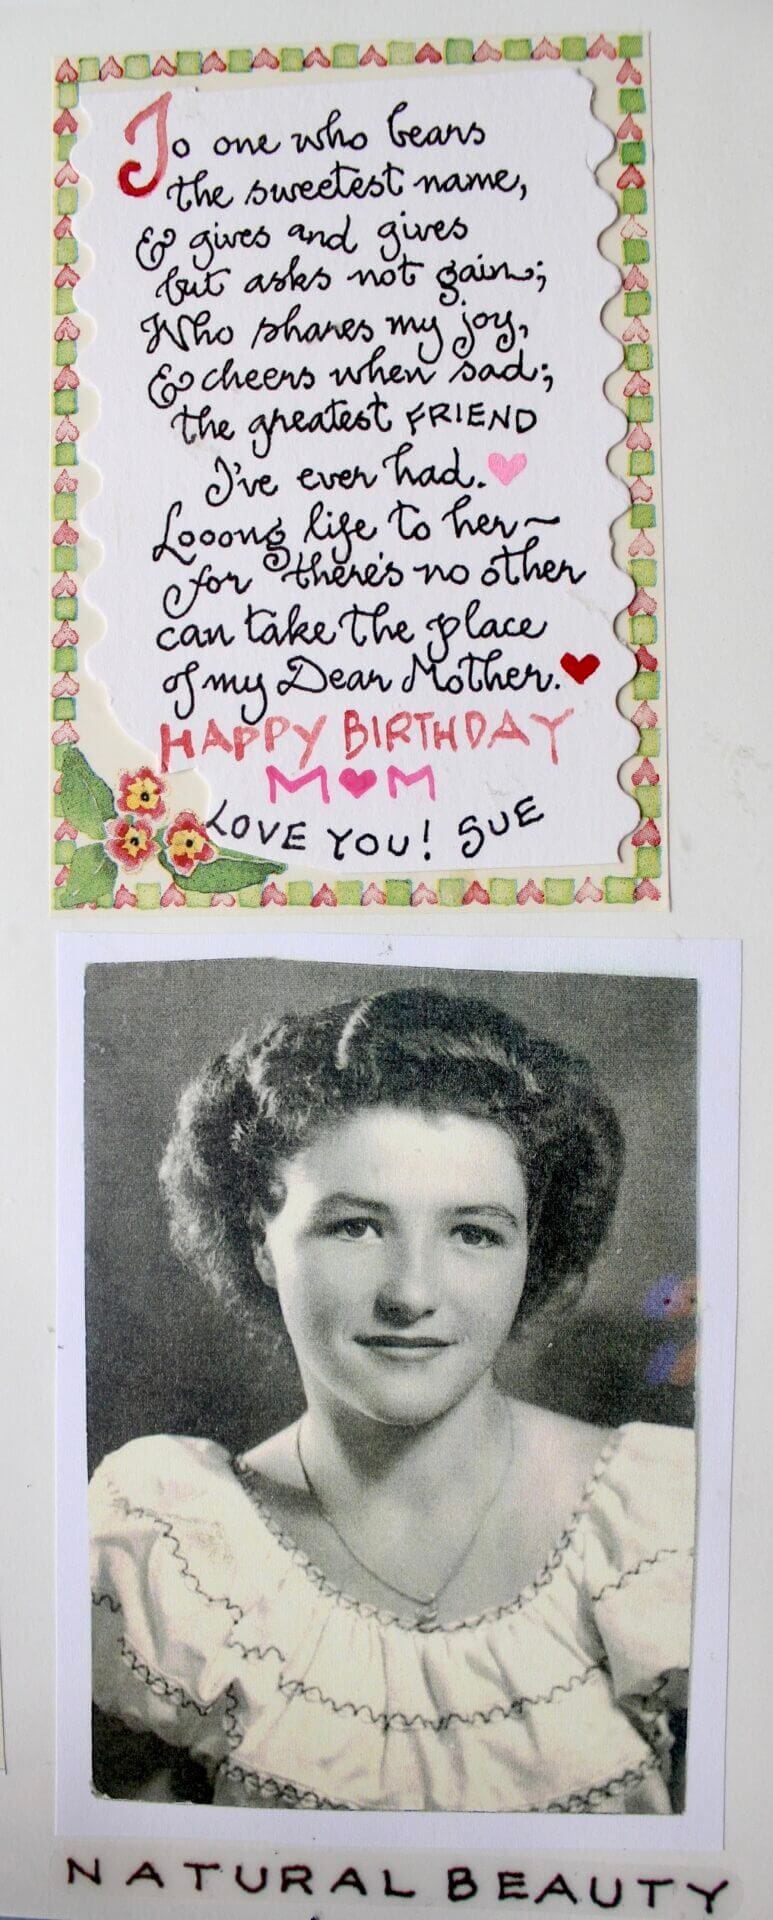 To one who bears
the sweetest name,
& gives and gives
but asks not gain;
Who shares my joy,
& cheers when sad;
the greatest FRIEND
I've ever had.
Looong life to her~
for there's no other
can take the place
of my Dear Mother.
HAPPY BIRTHDAY
M♥M
LOVE YOU! SUE
NATURAL BEAUTY